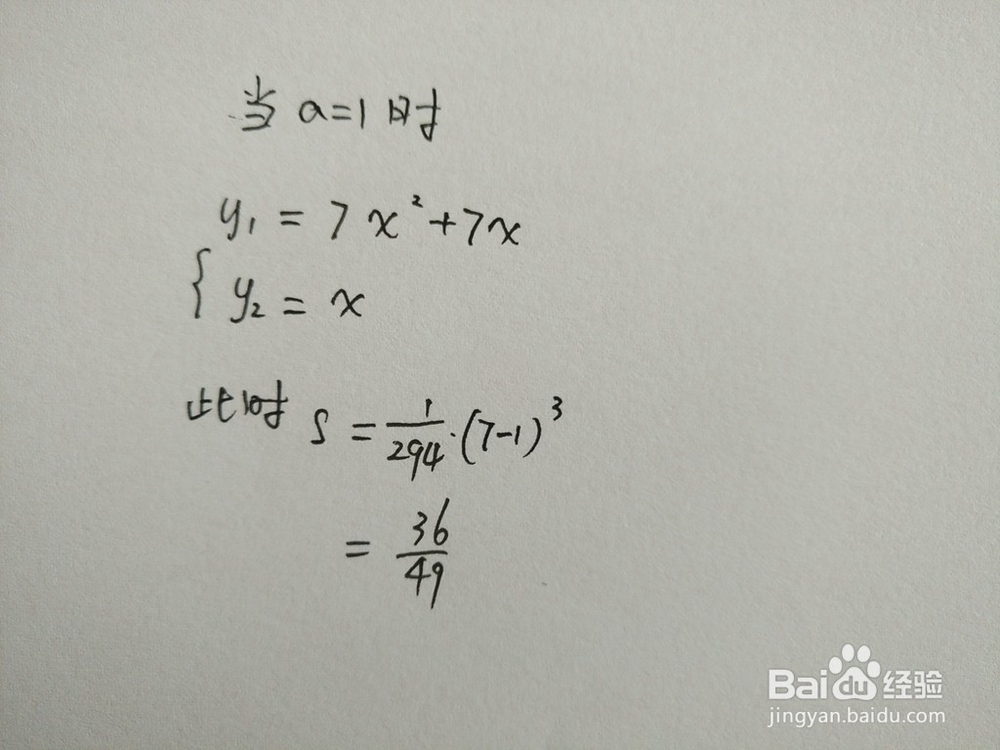 当 a=1 时
y₁ = 7x²+7x
{ y₂ = x
此时 S = 1/294·(7-1)³
= 36/49
Baidu 经验
jingyan.baidu.com